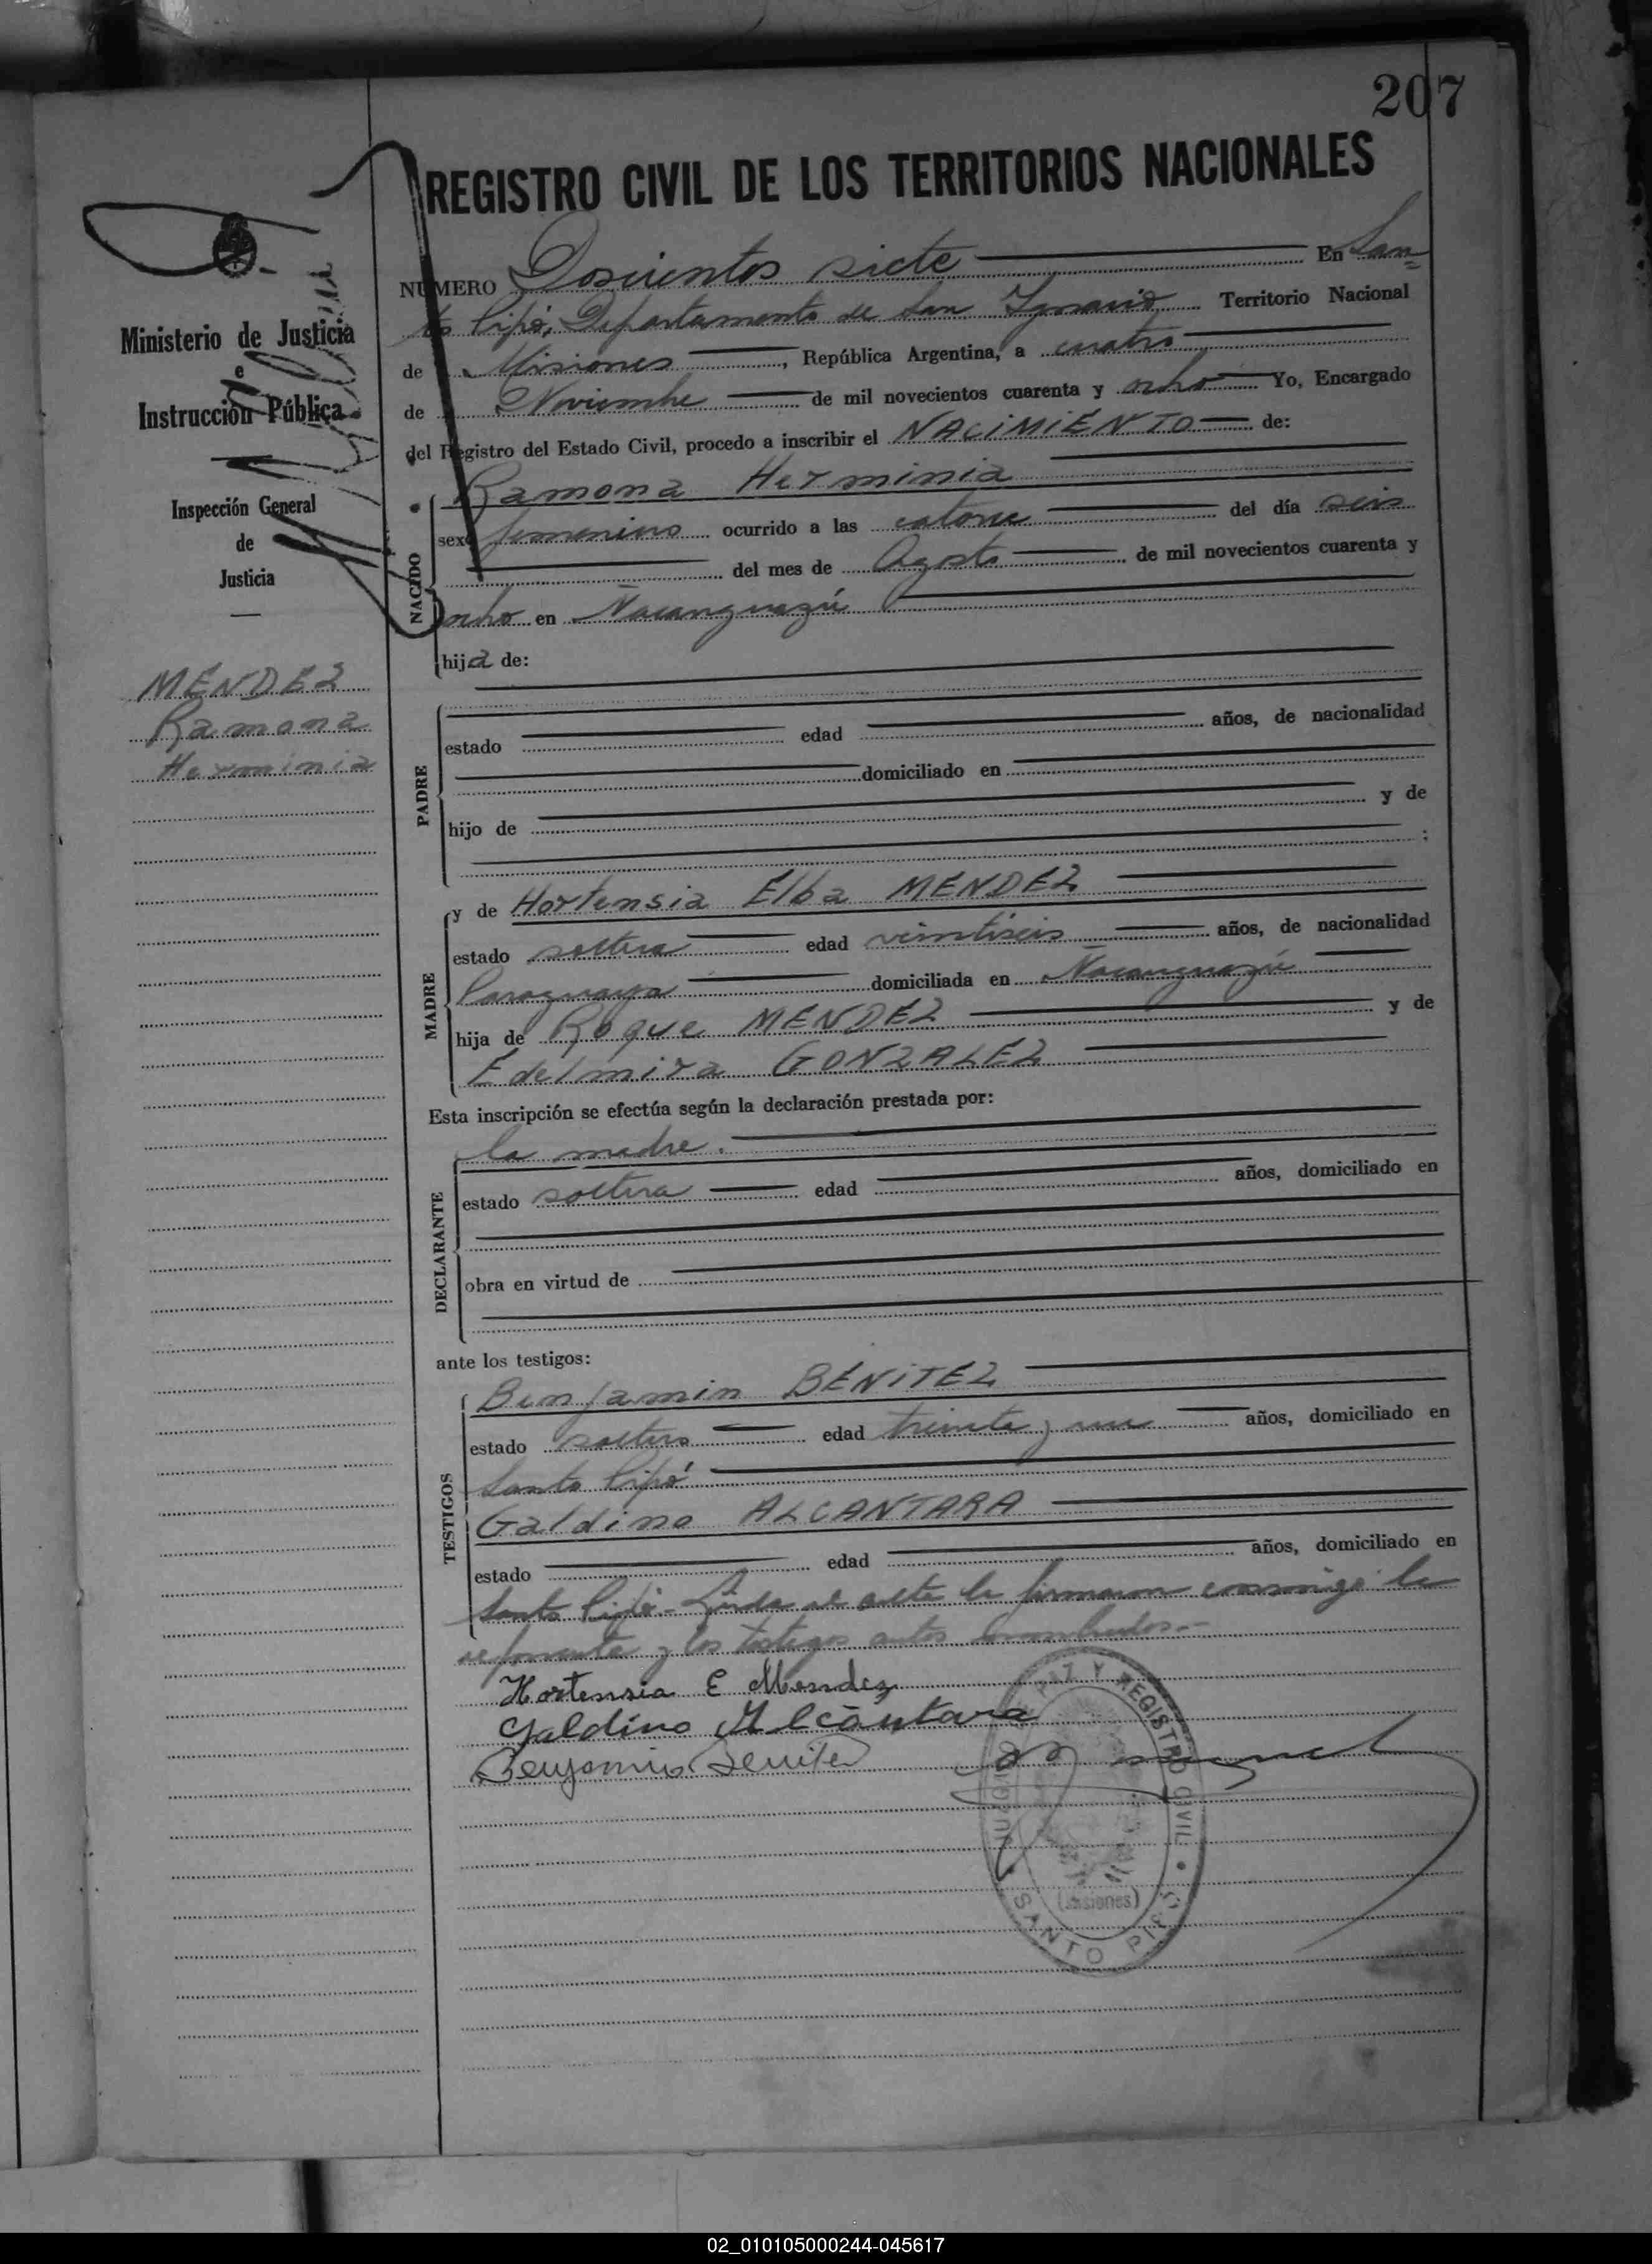 207
REGISTRO CIVIL DE LOS TERRITORIOS NACIONALES
NUMERO Doscientos siete En San=
to Pipó, Departamento de San Ignacio Territorio Nacional
de Misiones, República Argentina, a cuatro
de Noviembre de mil novecientos cuarenta y ocho Yo, Encargado
del Registro del Estado Civil, procedo a inscribir el NACIMIENTO de:
Ministerio de Justicia
e
Instrucción Pública
Inspección General
de
Justicia
MENDEZ
Ramona
Herminia
NACIDO
Ramona Herminia
sexo femenino ocurrido a las catorce del día seis
del mes de Agosto de mil novecientos cuarenta y
ocho en Ñacanguazú
hija de:
PADRE
estado edad años, de nacionalidad
domiciliado en
hijo de y de
;
MADRE
y de Hortensia Elba MENDEZ
estado soltera edad veintiseis años, de nacionalidad
Paraguaya domiciliada en Ñacanguazú
hija de Roque MENDEZ y de
Edelmira GONZALEZ
Esta inscripción se efectúa según la declaración prestada por:
DECLARANTE
la madre.
estado soltera edad años, domiciliado en
obra en virtud de
ante los testigos:
TESTIGOS
Benjamin BENITEZ
estado soltero edad treinta y un años, domiciliado en
Santo Pipó
Galdino ALCANTARA
estado edad años, domiciliado en
Santo Pipó - Leída el acta la firmaron conmigo la
exponente y los testigos antes nombrados.-
Hortensia E Mendez
Galdino Alcántara
Benjamin Benitez
PAZ Y REGISTRO CIVIL
(Misiones)
SANTO PIPÓ
02_010105000244-045617